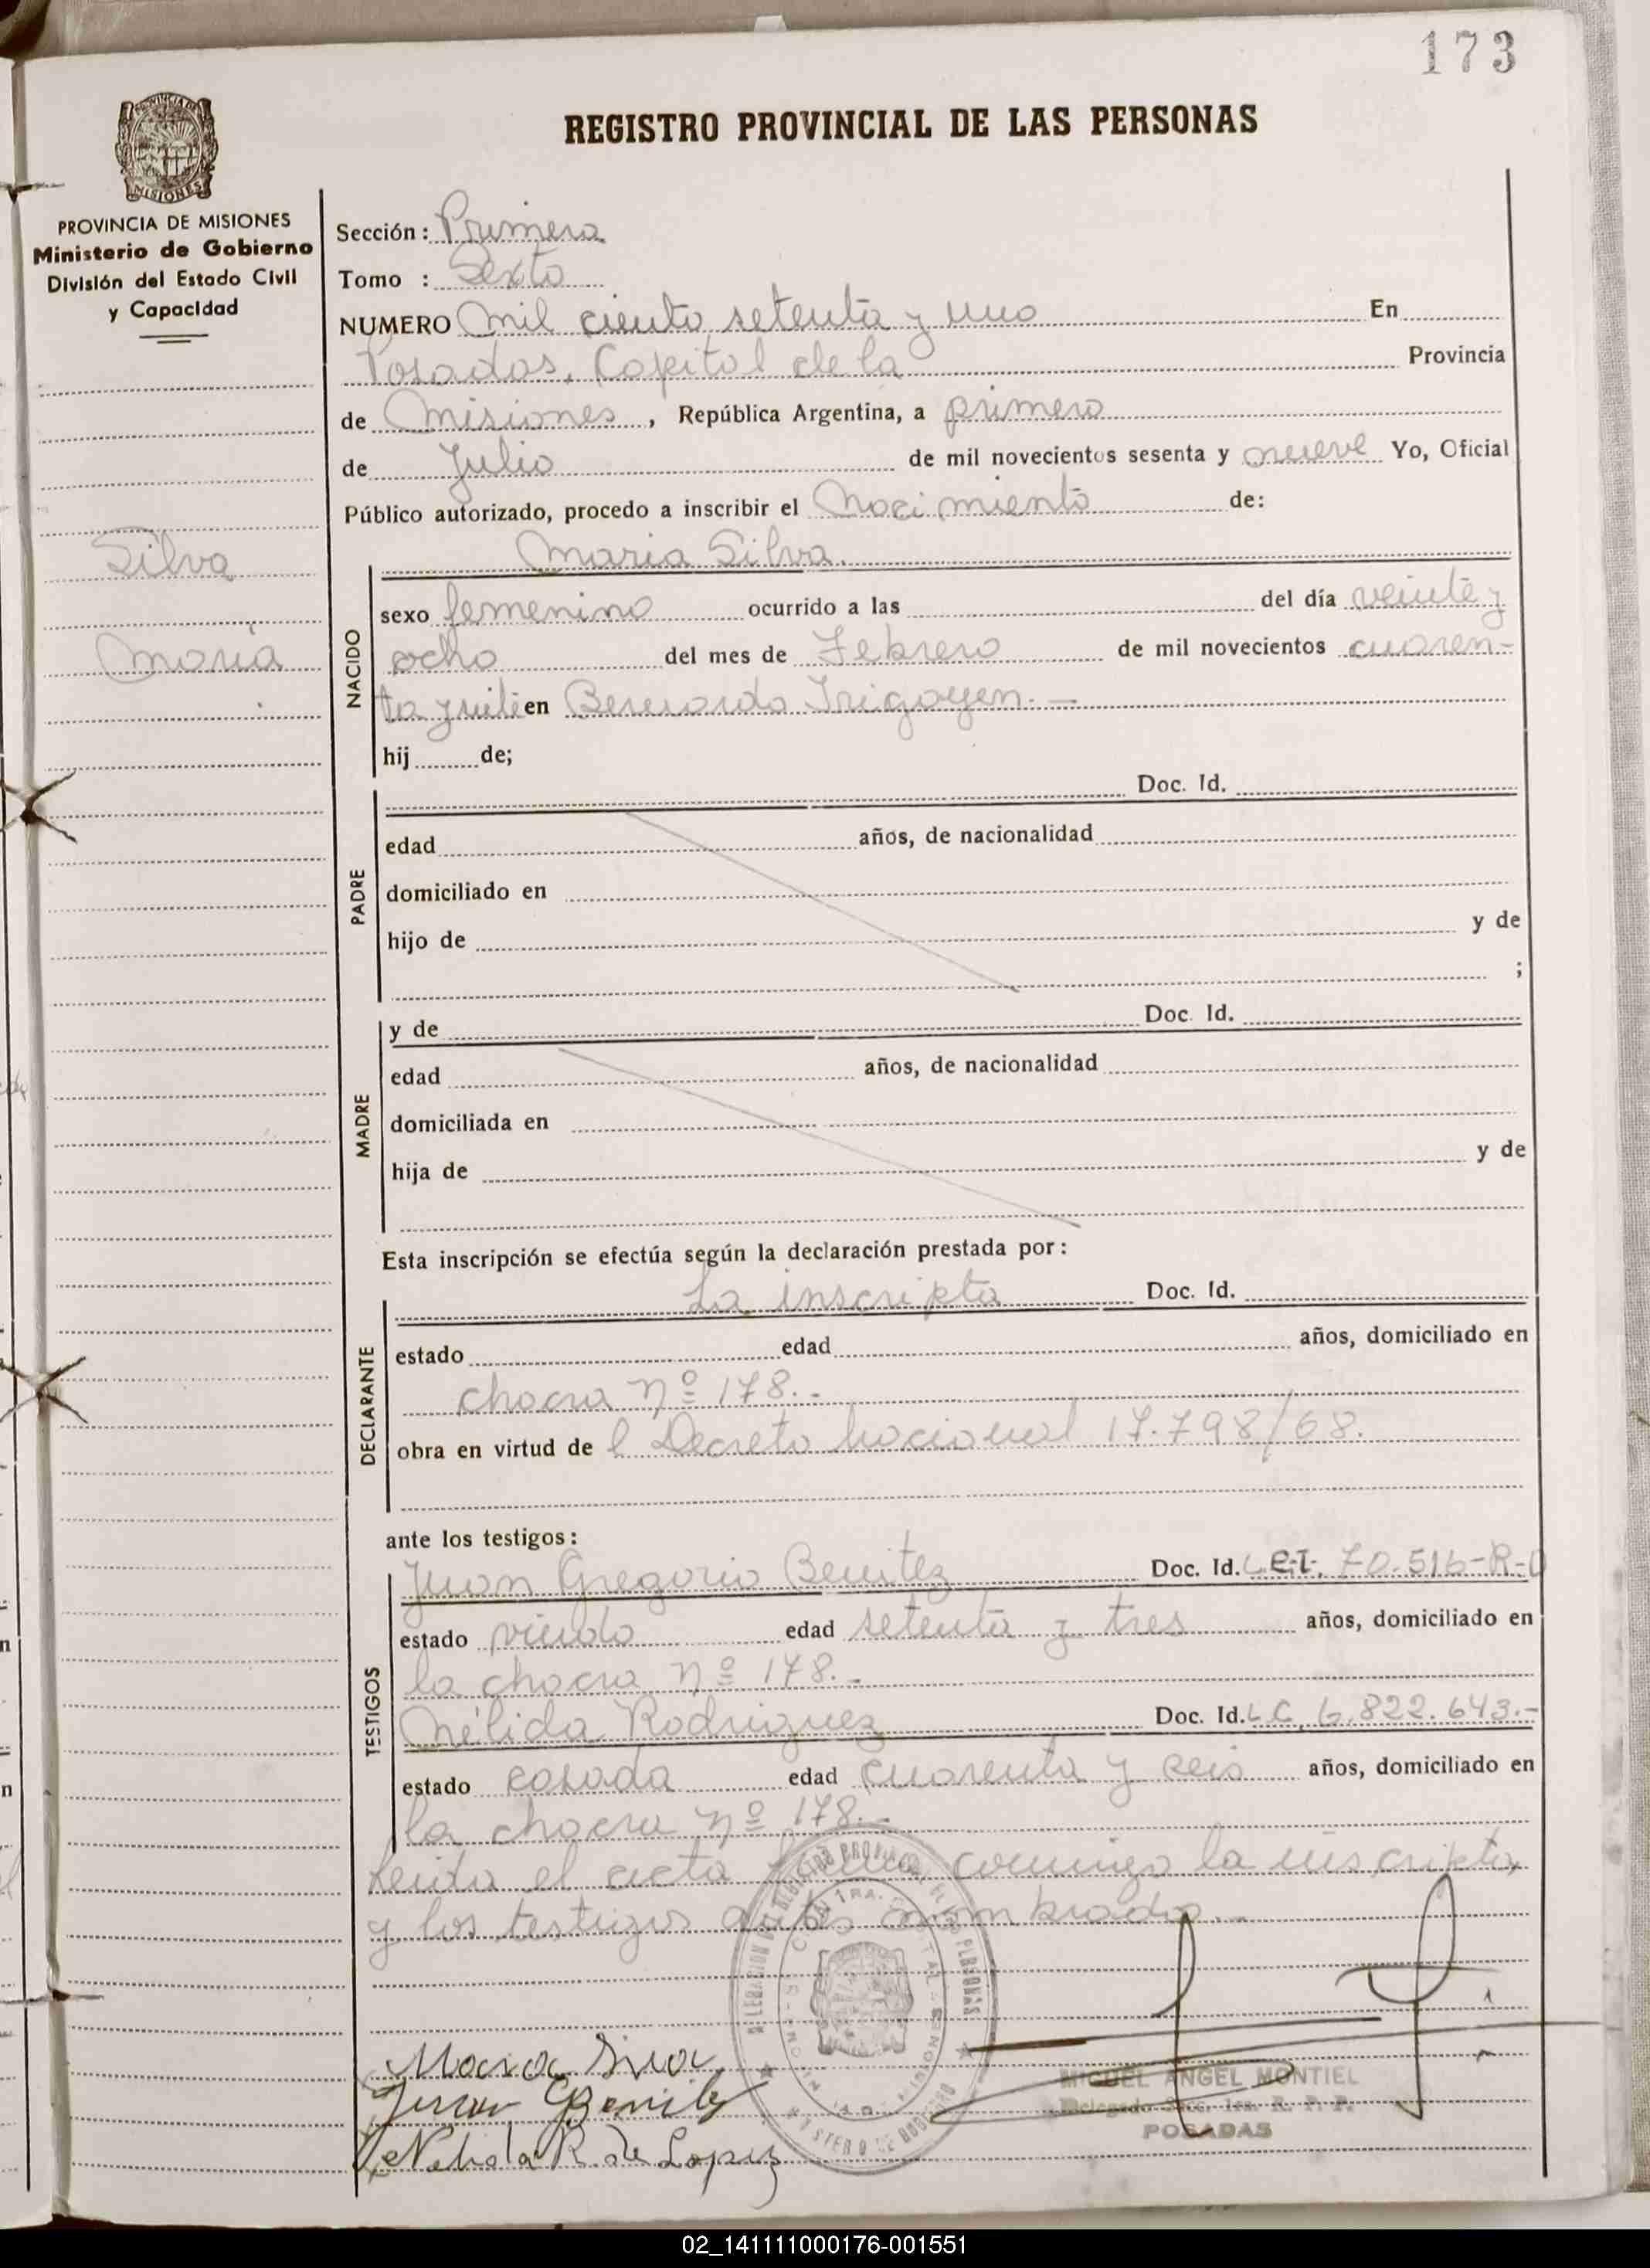 173
REGISTRO PROVINCIAL DE LAS PERSONAS
PROVINCIA DE MISIONES
Ministerio de Gobierno
División del Estado Civil
y Capacidad
Silva
Maria
Sección: Primera
Tomo : Sexto
NUMERO Mil ciento setenta y uno En
Posadas, Capital de la Provincia
de Misiones, República Argentina, a primero
de Julio de mil novecientos sesenta y nueve Yo, Oficial
Público autorizado, procedo a inscribir el Nacimiento de:
Maria Silva.
NACIDO
sexo femenino ocurrido a las del día veinte y
ocho del mes de Febrero de mil novecientos cuaren-
ta y en Bernardo Irigoyen. —
hij de;
PADRE
Doc. Id.
edad años, de nacionalidad
domiciliado en
hijo de y de
;
MADRE
y de Doc. Id.
edad años, de nacionalidad
domiciliada en
hija de y de
Esta inscripción se efectúa según la declaración prestada por:
DECLARANTE
La inscripta Doc. Id.
estado edad años, domiciliado en
chacra nº 178.-
obra en virtud de l Decreto Nacional 17.798/68.
ante los testigos:
TESTIGOS
Juan Gregorio Benitez Doc. Id. 70.516-R-
estado viudo edad setenta y tres años, domiciliado en
la chacra nº 178.-
Nélida Rodriguez Doc. Id. L.C. 6.822.643.-
estado casada edad cuarenta y seis años, domiciliado en
la chacra nº 178.-
Leida el acta conmigo la inscripta
y los testigos antes nombrados.-
Maria Silva
Juan G Benitez
Nelida R. de Lopez
MIGUEL ANGEL MONTIEL
Delegado Secc. 1ra. R. P. P.
POSADAS
02_141111000176-001551